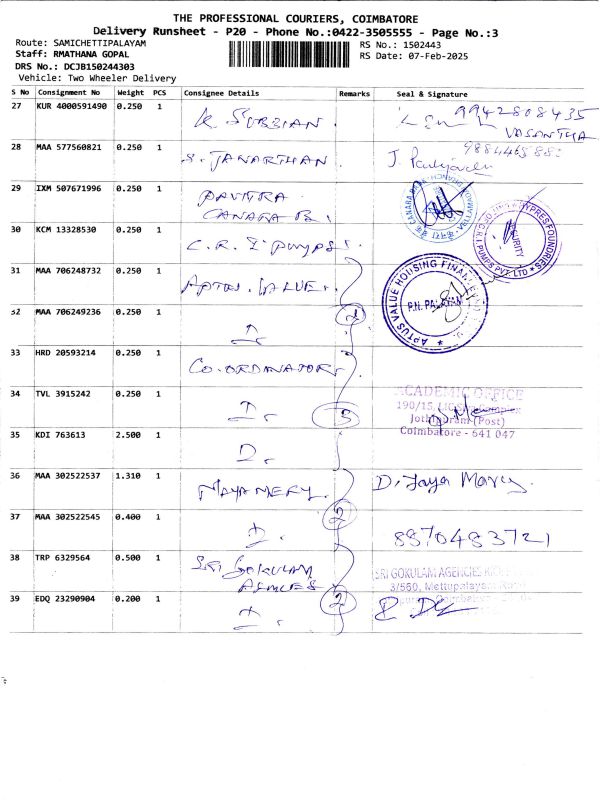 THE PROFESSIONAL COURIERS, COIMBATORE
Delivery Runsheet - P20 - Phone No.:0422-3505555 - Page No.:3
Route: SAMICHETTIPALAYAM
RS No.: 1502443
Staff: RMATHANA GOPAL
RS Date: 07-Feb-2025
DRS No.: DCJB150244303
Vehicle: Two Wheeler Delivery
S No Consignment No Weight PCS Consignee Details Remarks Seal & Signature
27 KUR 4000591490 0.250 1 K. SUBBIAN. 9942808435
VASANTHA
28 MAA 577560821 0.250 1 S. JANARTHAN.
29 IXM 507671996 0.250 1 PAVITRA
CANARA B.
30 KCM 13328530 0.250 1 C.R.I PUMPS.
31 MAA 706248732 0.250 1 APTUS. VALUE.
APTUS VALUE HOUSING FINANCE
P.N. PALAYAM
32 MAA 706249236 0.250 1 D. 2
33 HRD 20593214 0.250 1 CO-ORDINATOR.
34 TVL 3915242 0.250 1 D. 3
ACADEMIC OFFICE
(Post)
Coimbatore - 641 047
35 KDI 763613 2.500 1 D.
36 MAA 302522537 1.310 1 MAYAMERY. D. Jaya Mary.
37 MAA 302522545 0.400 1 D. 2 8870483721
38 TRP 6329564 0.500 1 SRI GOKULAM
SRI GOKULAM AGENCIES
3/560, Mettupalayam
39 EDQ 23290904 0.200 1 D. 2